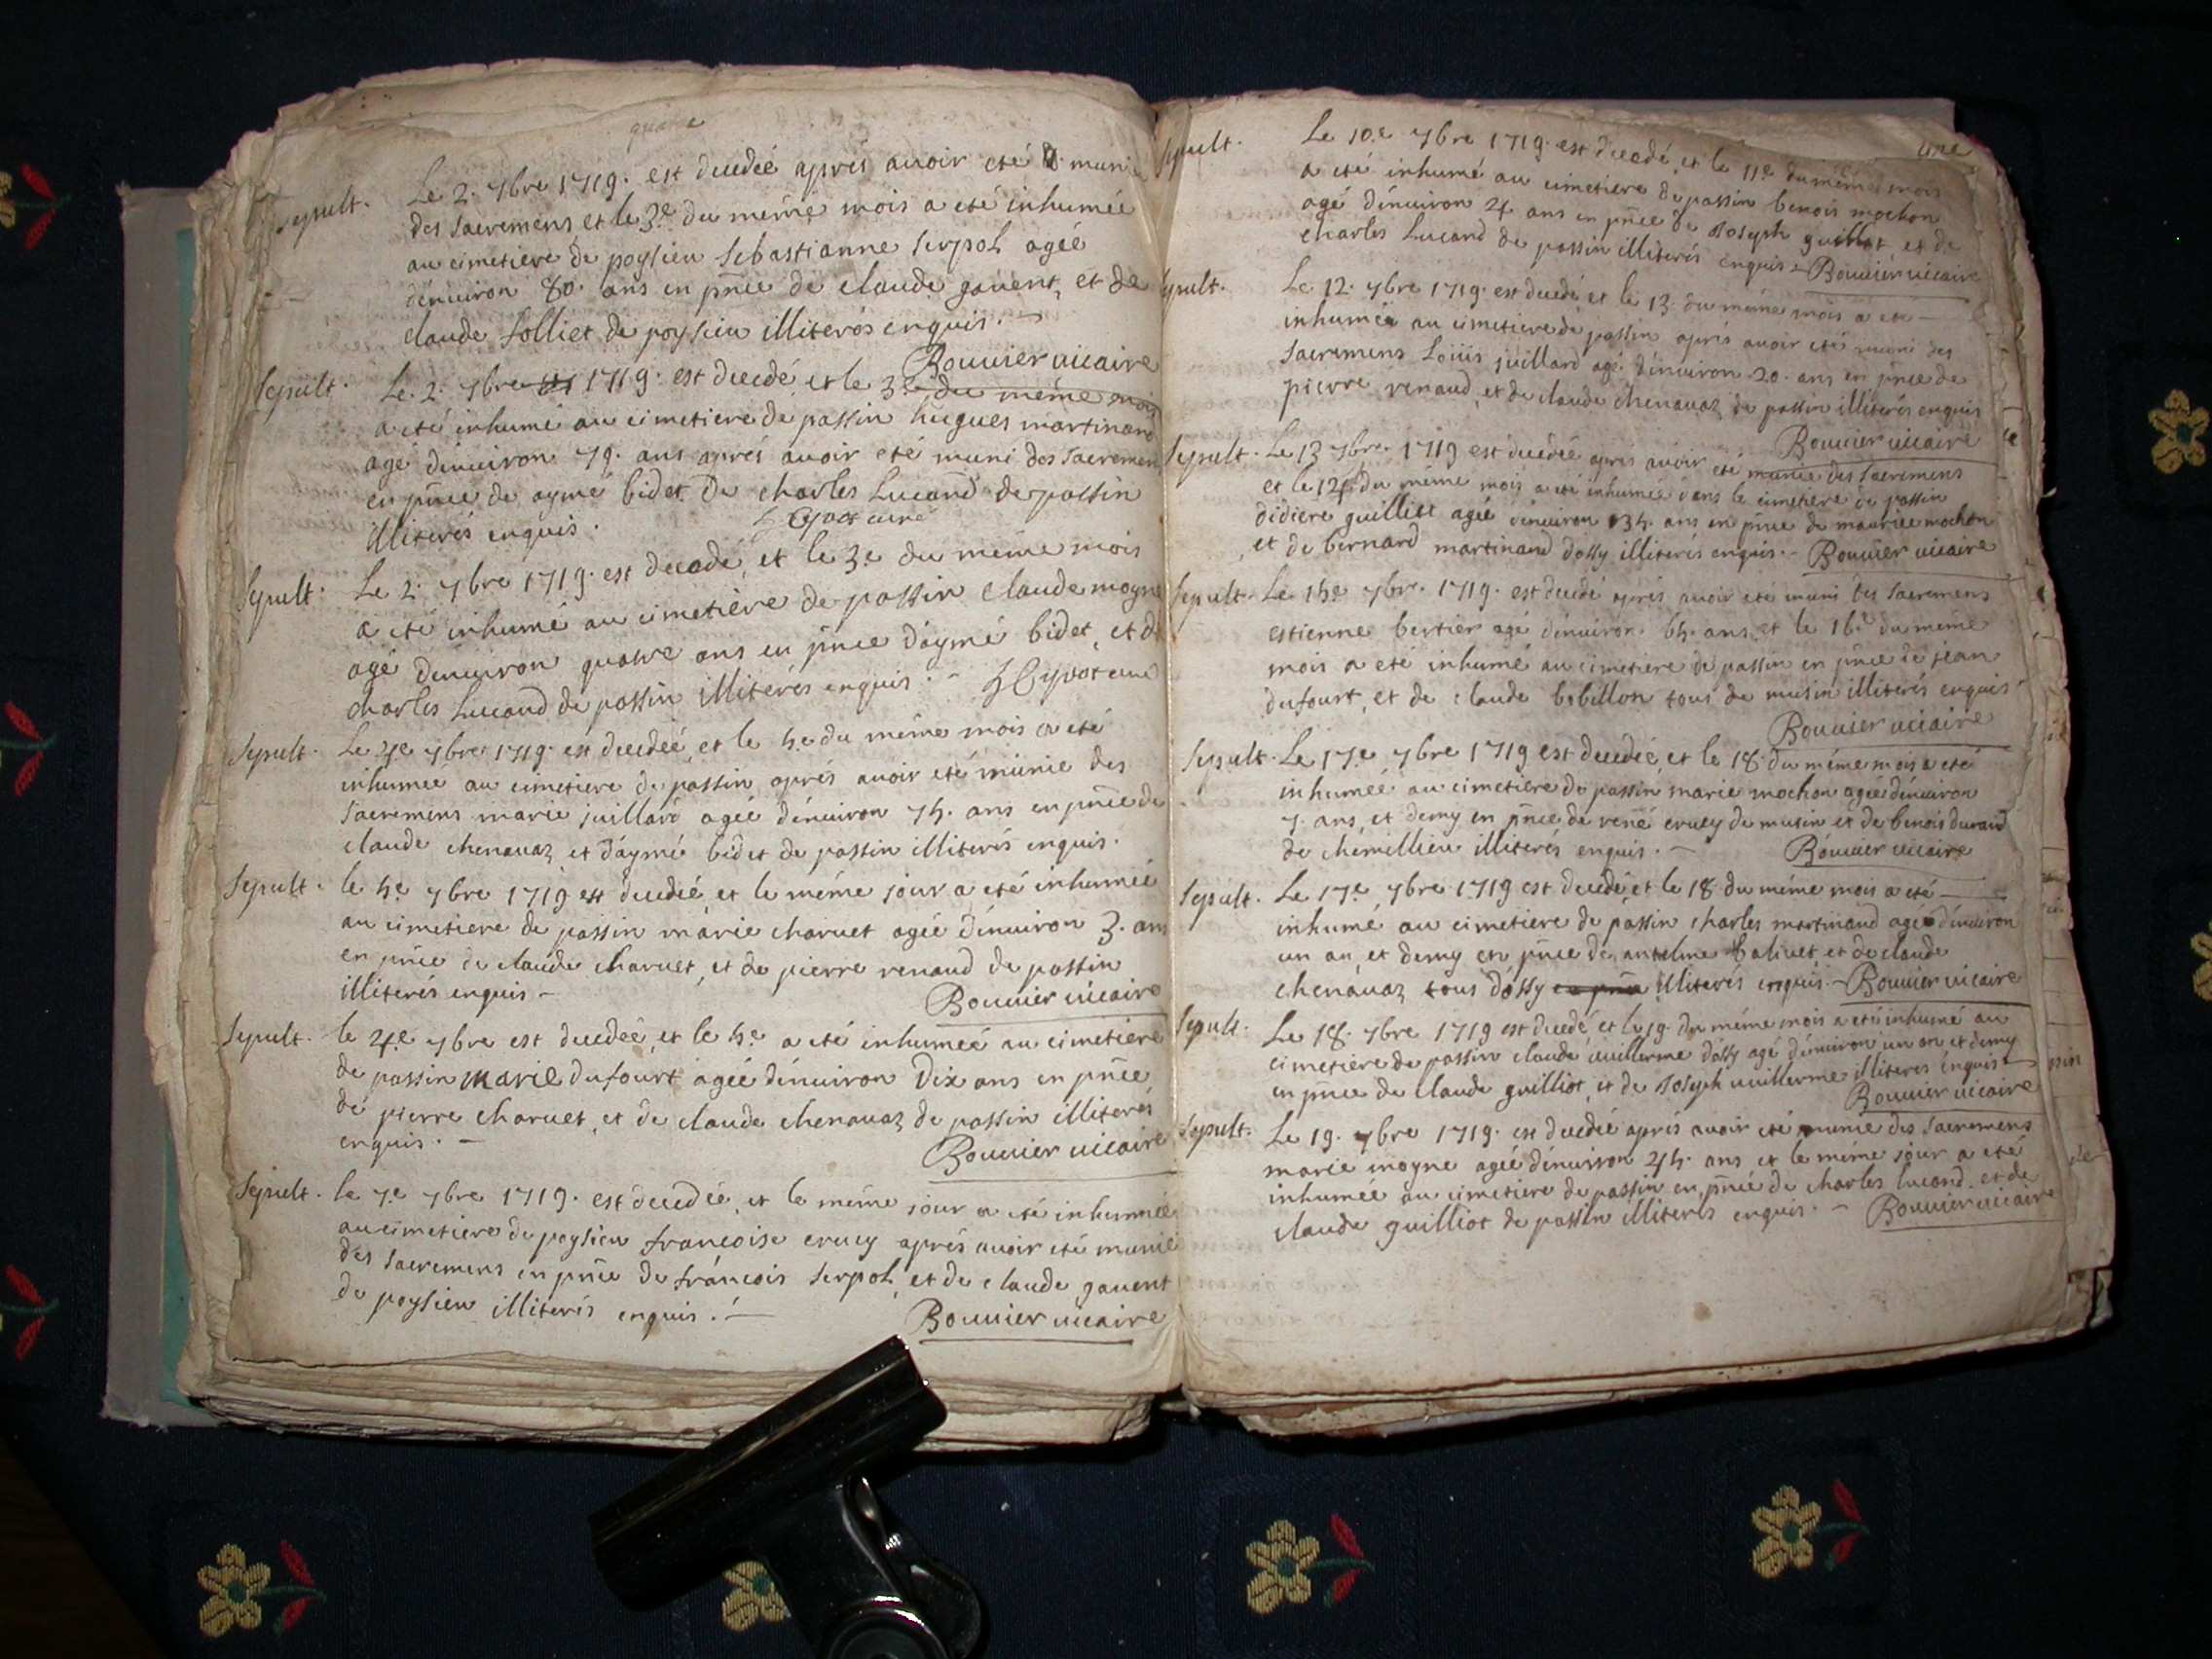 quatre
Sepult. Le 2. 7bre 1719. est decedeé aprés auoir eté munie
des Sacremens, et le 3e du méme mois a eté inhumeé
au cimetiere de poysieu Sebastianne Serpol ageé
d'enuiron 80. ans en pñce de claude gauent, et de
claude Solliet de poysieu illiterés enquis. -
Bouuier uicaire
Sepult. Le 2. 7bre 1719. est decedé et le 3e du méme mois
a eté inhumé au cimetiere de passin hugues martinand
agé d'enuiron 79. ans aprés auoir eté muni des Sacremens
en pñce de aymé bidet de charles Lucand de passin
illiterés enquis. curé
Sepult. Le 2. 7bre 1719. est decedé, et le 3e du méme mois
a eté inhumé au cimetière de passin claude moyne
agé d'enuiron quatre ans en pñce d'aymé bidet, et de
charles Lucand de passin illiterés enquis. - curé
Sepult. Le 4e 7bre 1719. est decedeé, et le 5e du méme mois a eté
inhumeé au cimetiere de passin aprés auoir eté munie des
Sacremens marie juillard ageé d'enuiron 75. ans en pñce de
claude chenauaz et d'aymé bidet de passin illiterés enquis.
Sepult. le 5e 7bre 1719 est decedeé, et le méme jour a eté inhumeé
au cimetiere de passin marie charuet ageé d'enuiron 3. ans
en pñce de claude charuet, et de pierre renaud de passin
illiterés enquis -
Bouuier uicaire
Sepult. le 4e 7bre est decedeé, et le 5e a eté inhumeé au cimetiere
de passin marie dufourt ageé d'enuiron Dix ans en pñce
de pierre charuet, et de claude chenauaz de passin illiterés
enquis. -
Bouuier uicaire
Sepult. le 7e 7bre 1719. est decedeé, et le méme jour a eté inhumeé
au cimetiere de poysieu francoise crucy aprés auoir eté munie
des Sacremens en pñce de francois Serpol, et de claude gauent
de poysieu illiterés enquis. -
Bouuier uicaire
Sepult. Le 10e 7bre 1719. est decedé, et le 11e du méme mois
a eté inhumé au cimetiere de passin benois mochon
agé d'enuiron 4 ans en pñce de Joseph guilliot et de
charles Lucand de passin illiterés enquis - Bouuier uicaire
Sepult. Le 12. 7bre 1719. est decedé et le 13. du méme mois a eté -
inhumé au cimetiere de passin aprés auoir eté muni des
Sacremens Loüis juillard agé d'enuiron 20. ans en pñce de
pierre renaud, et de claude chenauaz de passin illiterés enquis
Bouuier uicaire
Sepult. Le 13 7bre. 1719 est decedeé aprés auoir eté munie des Sacremens
et le 14. du méme mois a eté inhumeé dans le cimetiere de passin
didiere guilliot ageé d'enuiron 35. ans en pñce de maurice mochon
et de bernard martinand d'ossy illiterés enquis. - Bouuier uicaire
Sepult. Le 15e 7bre. 1719. est decedé aprés auoir eté muni des Sacremens
estienne bertier agé d'enuiron 65. ans, et le 16e du méme
mois a eté inhumé au cimetiere de passin en pñce de jean
dufourt, et de claude bobillon tous de musin illiterés enquis
Bouuier uicaire
Sepult. Le 17e 7bre 1719 est decedeé, et le 18. du méme mois a eté
inhumeé au cimetière de passin marie mochon ageé d'enuiron
7. ans, et demy en pñce de rené crucy de musin et de benois durand
de chemillieu illiterés enquis. - Bouuier uicaire
Sepult. Le 17e 7bre 1719 est decedé et le 18 du méme mois a eté -
inhumé au cimetiere de passin charles martinand agé d'enuiron
un an, et demy en pñce de antelme baliuet, et de claude
chenauaz tous d'ossy illiterés enquis - Bouuier uicaire
Sepult. Le 18. 7bre 1719 est decedé et le 19. du méme mois a eté inhumé au
cimetière de passin claude uuillerme d'ossy agé d'enuiron un an et demy
en pñce de claude guilliot, et de Joseph uuillerme illiteres enquis -
Bouuier uicaire
Sepult. Le 19. 7bre 1719. est decedeé aprés auoir eté munie des Sacremens
marie moyne ageé d'enuiron 45. ans et le méme jour a eté
inhumeé au cimetiere de passin en pñce de charles lucand, et de
claude guilliot de passin illiterés enquis. - Bouuier uicaire